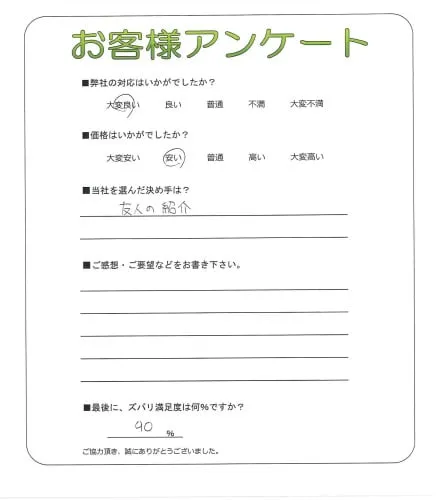 お客様アンケート
■弊社の対応はいかがでしたか？
大変良い 良い 普通 不満 大変不満
■価格はいかがでしたか？
大変安い 安い 普通 高い 大変高い
■当社を選んだ決め手は？
友人の紹介
■ご感想・ご要望などをお書き下さい。
■最後に、ズバリ満足度は何%ですか？
90 %
ご協力頂き、誠にありがとうございました。